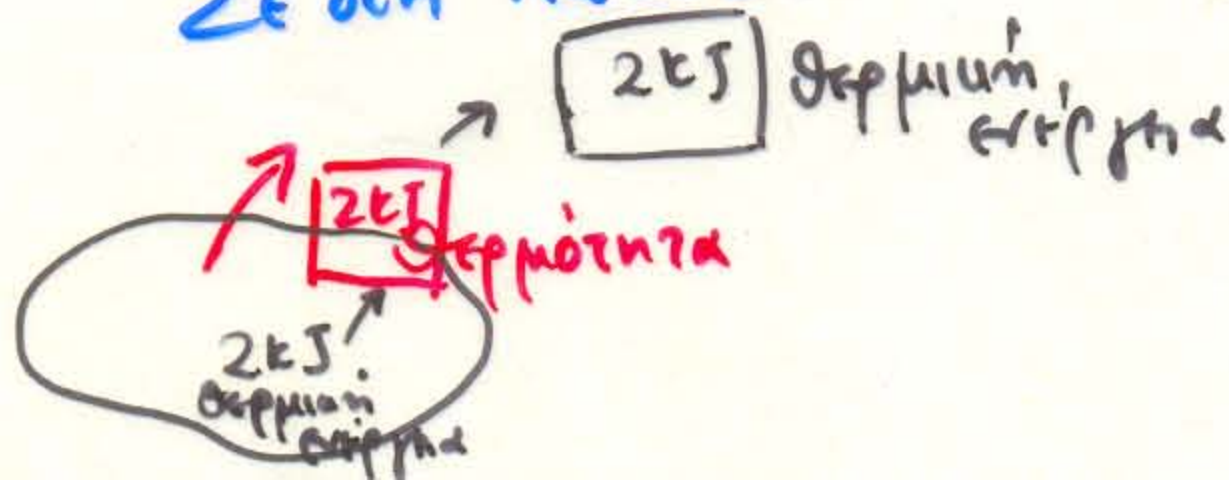 Σε
2kJ θερμική
ενέργεια
2kJ
θερμότητα
2kJ
θερμική
ενέργεια